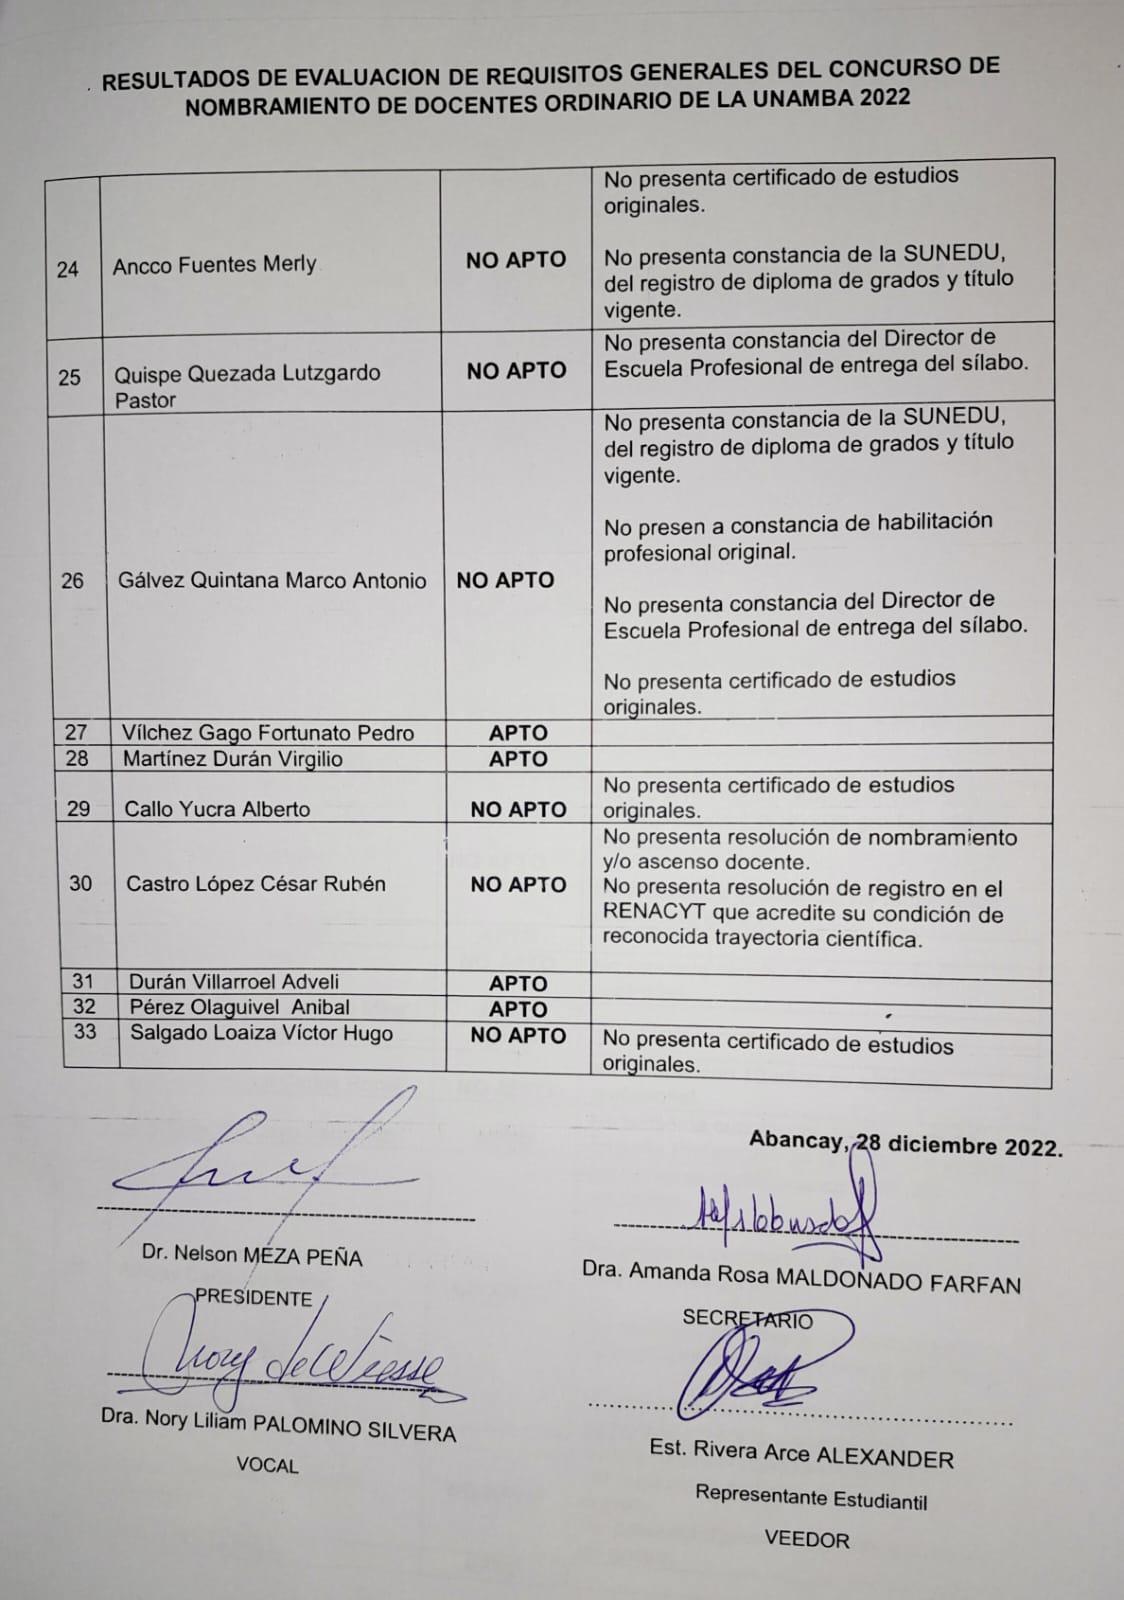 RESULTADOS DE EVALUACION DE REQUISITOS GENERALES DEL CONCURSO DE
NOMBRAMIENTO DE DOCENTES ORDINARIO DE LA UNAMBA 2022
24 Ancco Fuentes Merly NO APTO
No presenta certificado de estudios
originales.
No presenta constancia de la SUNEDU,
del registro de diploma de grados y título
vigente.
25 Quispe Quezada Lutzgardo
Pastor
NO APTO
No presenta constancia del Director de
Escuela Profesional de entrega del sílabo.
26 Gálvez Quintana Marco Antonio NO APTO
No presenta constancia de la SUNEDU,
del registro de diploma de grados y título
vigente.
No presen a constancia de habilitación
profesional original.
No presenta constancia del Director de
Escuela Profesional de entrega del sílabo.
No presenta certificado de estudios
originales.
27 Vílchez Gago Fortunato Pedro APTO
28 Martínez Durán Virgilio APTO
29 Callo Yucra Alberto NO APTO
No presenta certificado de estudios
originales.
30 Castro López César Rubén NO APTO
No presenta resolución de nombramiento
y/o ascenso docente.
No presenta resolución de registro en el
RENACYT que acredite su condición de
reconocida trayectoria científica.
31 Durán Villarroel Adveli APTO
32 Pérez Olaguivel Anibal APTO
33 Salgado Loaiza Víctor Hugo NO APTO
No presenta certificado de estudios
originales.
Abancay, 28 diciembre 2022.
Dr. Nelson MEZA PEÑA
PRESIDENTE
Dra. Amanda Rosa MALDONADO FARFAN
SECRETARIO
Nory de Wiesse
Dra. Nory Liliam PALOMINO SILVERA
VOCAL
Est. Rivera Arce ALEXANDER
Representante Estudiantil
VEEDOR